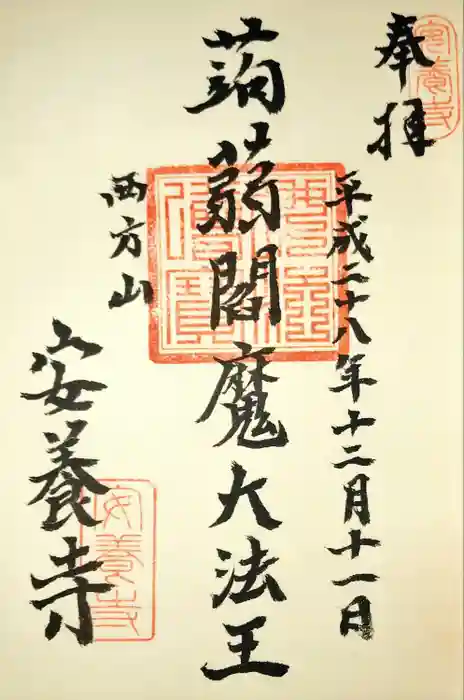 奉拝
平成二十八年十二月十一日
蒟蒻閻魔大法王
西方山
安養寺
安養寺
安養寺